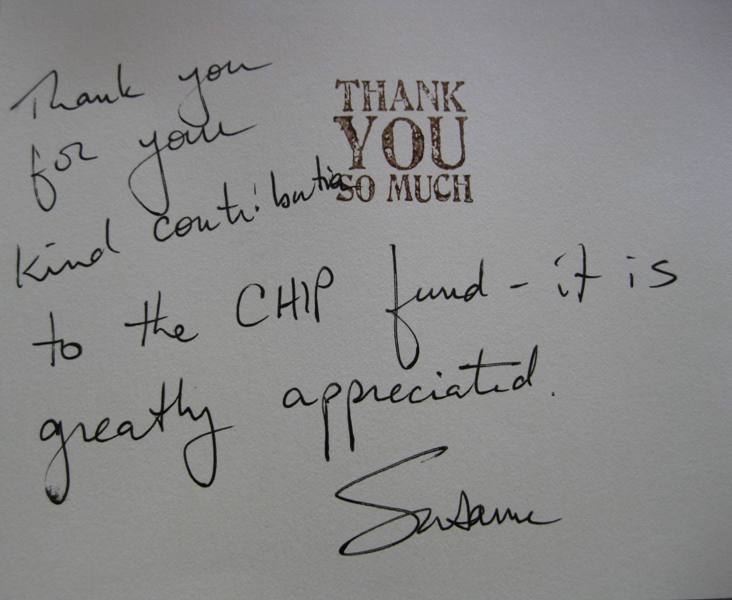 Thank you
for your
kind contribution
to the CHIP fund - it is
greatly appreciated.
Susanne
THANK
YOU
SO MUCH